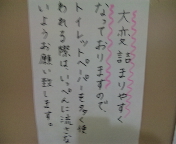 大変詰まりやすく
なっておりますので、
トイレットペーパーを多く使
われる際はいっぺんに流さな
いようお願い致します。